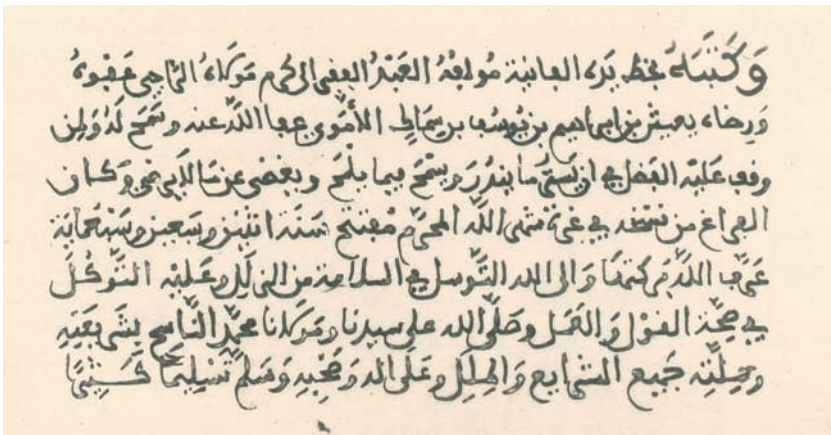 وَكَتَبَهُ بخط يَده الفانية مُؤلفهُ العَبْدُ الفقير الى كرم مَوْلَاهُ الرّاجى عَفْوهُ
وَرِضاه يعيش بن ابراهيم بن يُوسُف بن سماك الأُمَوِي عفا اللّه عنه وسَمَحَ لَهُ وَلِمن
وقف عَلَيْه الفَضل في ان يَستُر ما يندُرَ وَيسْمَحَ فيما يلمَح ويغضى عن مَا لَا يرضى وكان
الفراغ من نسْخه في غرة شهر اللّه المحَرَّم مُفتتح سَنَة اثنَيْن وسَبعِين وسَبْعمايَة
عَرَّف اللّه بَركَتهَا وَالى الله التَّوسل في السلامة من الزلل وعَليْه التَّوكل
في صِحَّة القوْل وَالعَمَل وصَلَّى الله على سيدنا ومَوْلانا محمّد النَّاسِخ بشَرِيعَتِهِ
ومِلَّتِه جَميع الشرايع وَالملَل وعَلى اله وَصَحْبِهِ وَسَلم تَسْلِيمًا كَثِيرًا